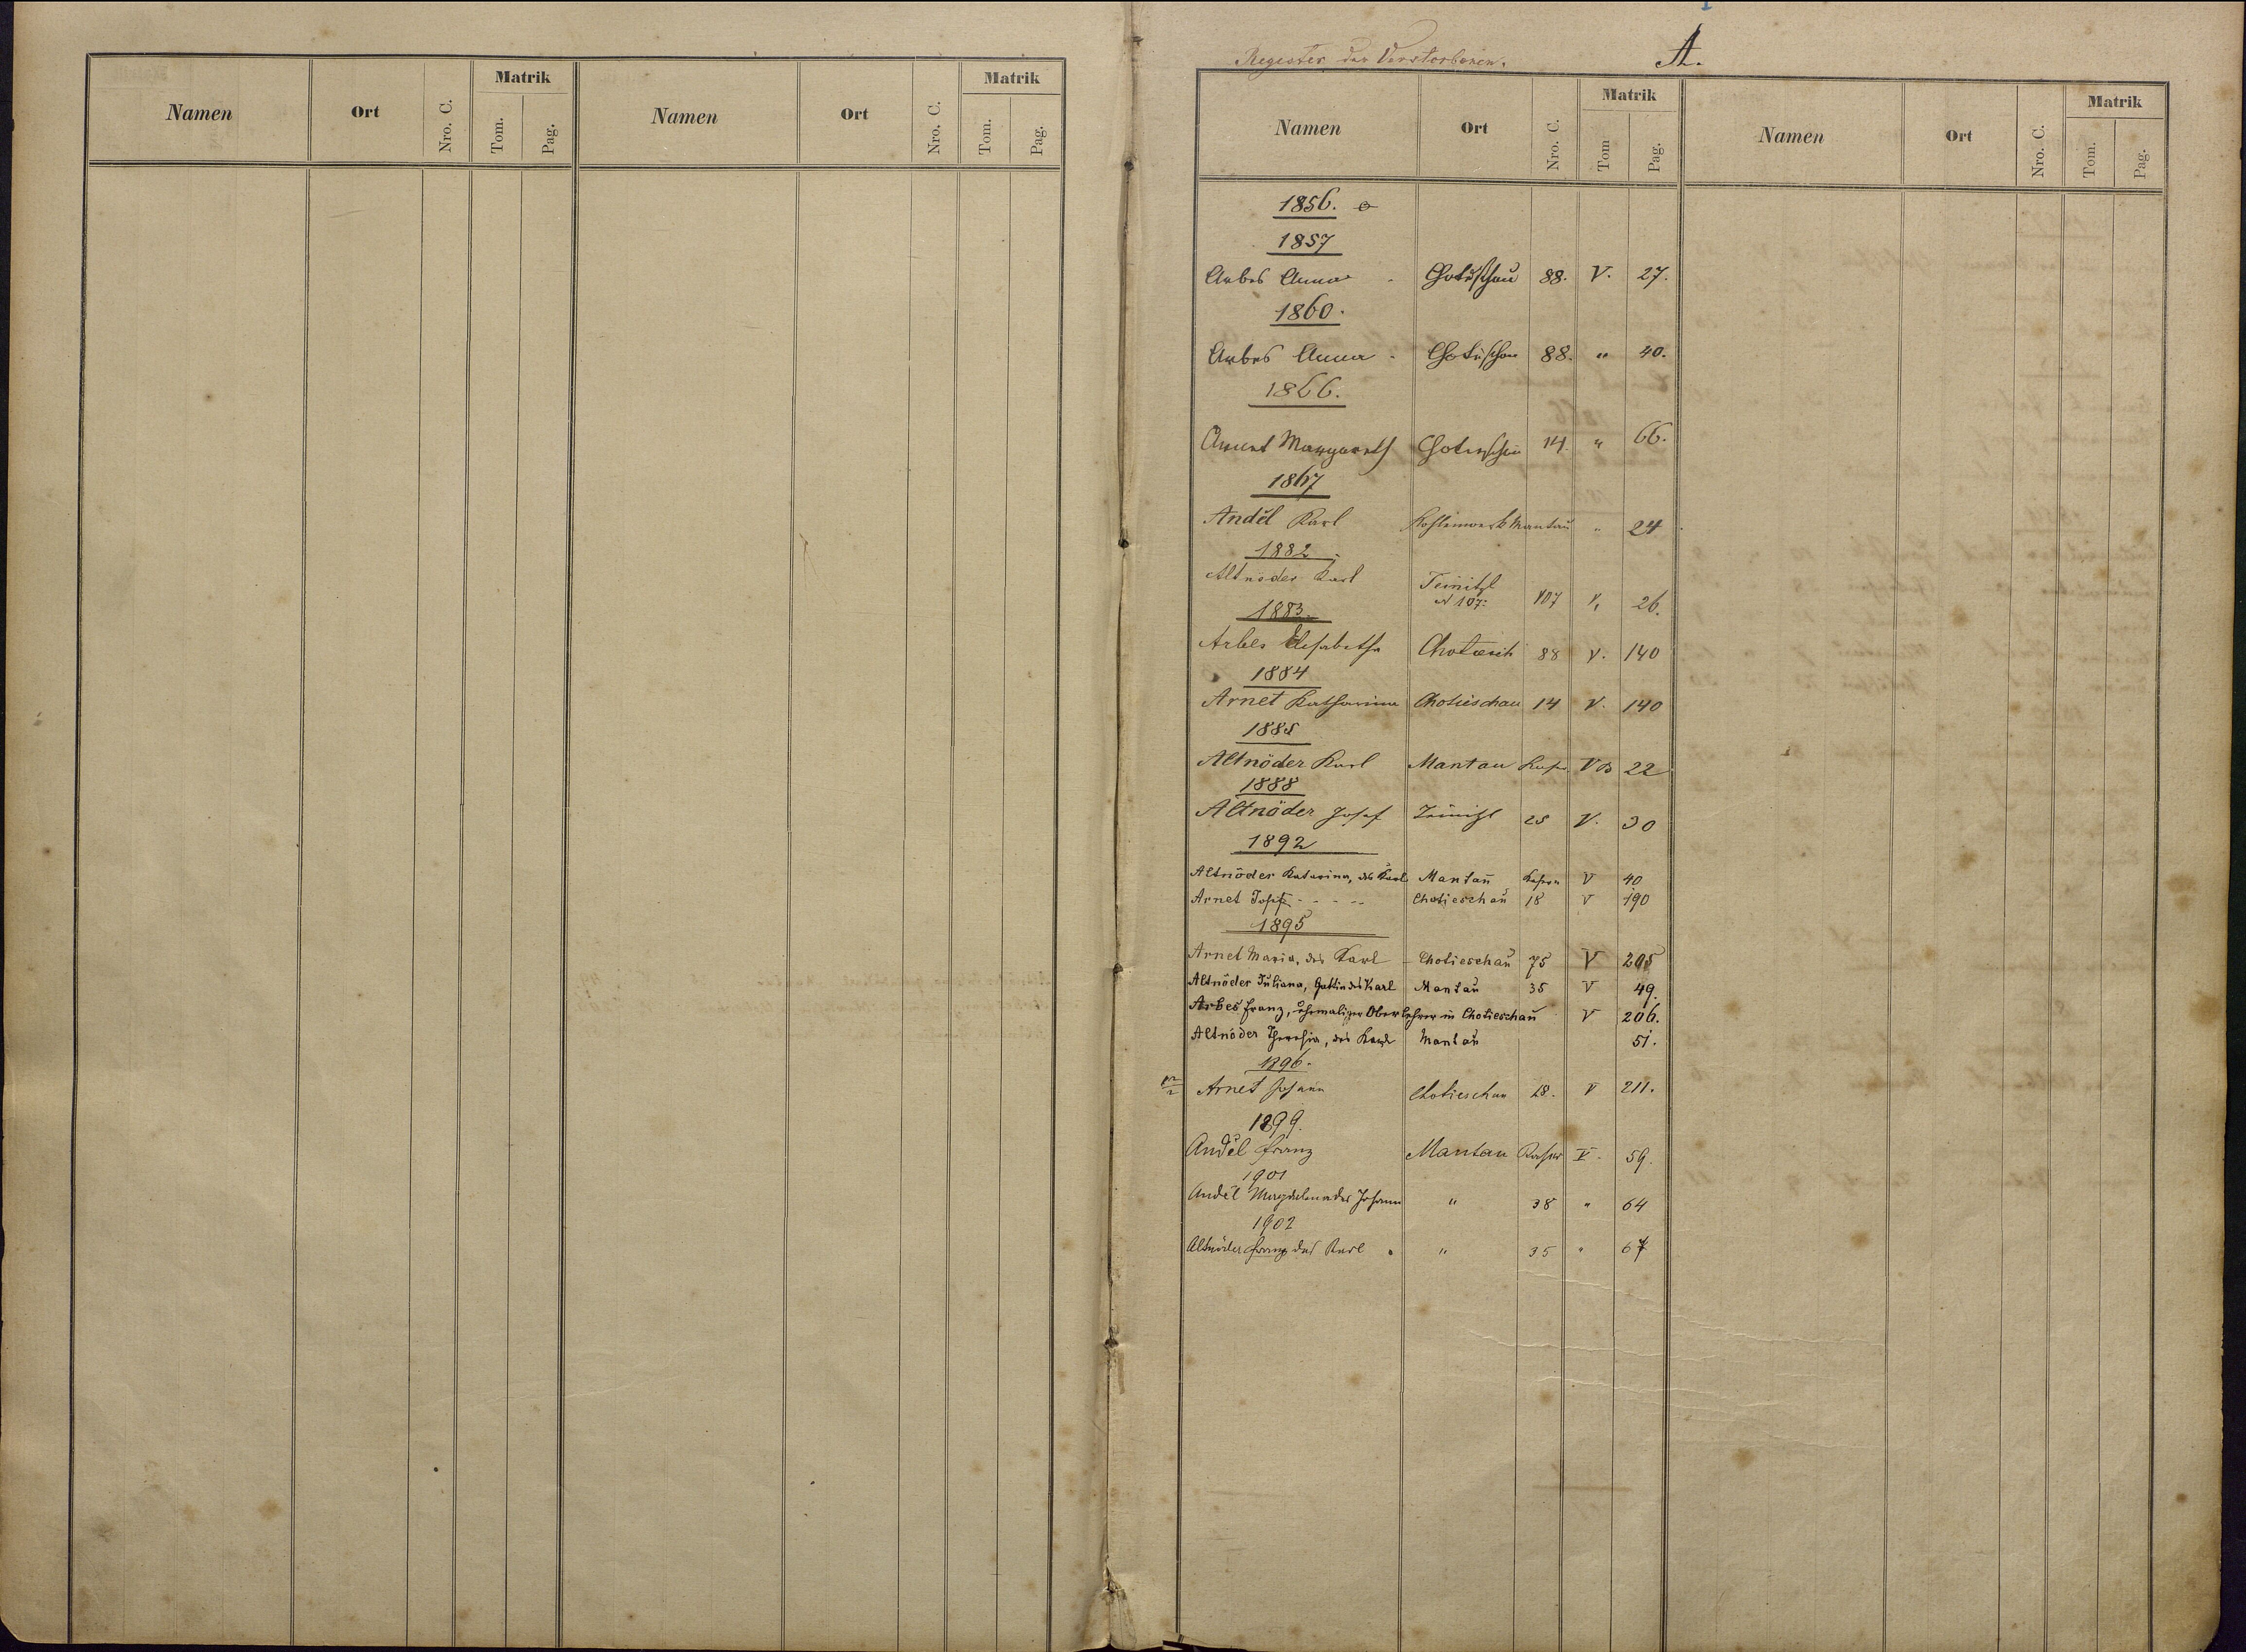 Matrik
Matrik
Namen Ort Nro. C. Tom. Pag. Namen Ort Nro. C. Tom. Pag.
Register der Verstorbenen. A.
Matrik
Matrik
Namen Ort Nro. C. Tom Pag. Namen Ort Nro. C. Tom. Pag.
1856.
1857
Arbes Anna Chotieschau 88. V. 27.
1860.
Arbes Anna Chotieschau 88. " 40.
1866.
Arnet Margareth Chotieschau 14. " 66.
1867
Anděl Karl Kohlenwerk Mantau " 24
1882
Altnöder Karl Teinitzl
N 107: 107 V. 26.
1883
Arbes Elisabetha 88 V. 140
1884
Arnet Katharina Chotieschau 14 V. 140
1885
Altnöder Karl Mantau V 22
1888
Altnöder Josef Teinitzl 25 V. 30
1892
Altnöder Katarina, des Karl Mantau V 40
Arnet Josef - - - - - Chotieschau 18 V 190
1895
Arnet Maria, des Karl - Chotieschau 75 V 205
Altnöder Juliana, Gattin des Karl Mantau 35 V 49.
Arbes Franz, ehemaliger Oberlehrer in Chotieschau V 206.
Altnöder Theresia, des Karl Mantau 51.
1896.
Arnet Johann Chotieschau 18. V 211.
1899.
Anděl Franz Mantau V. 59.
1901
Anděl Magdalena des Johann " 38 " 64
1902
Altnöder Franz des Karl " 35 " 67